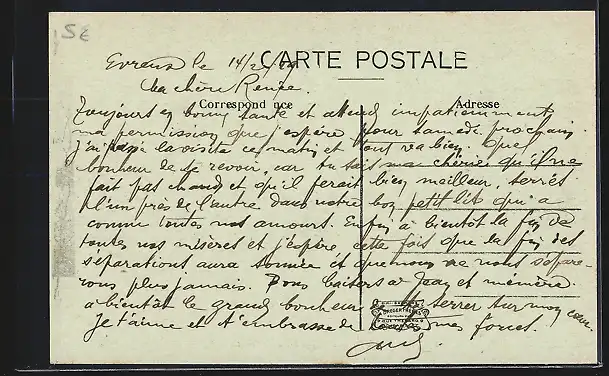 SE
CARTE POSTALE
Evreux le 14/2/
Ma chère Renée.
Correspond ace
Adresse
Toujours en bonne santé et attend impatiemment
ma permission que j'espère pour samedi prochain.
J'ai passé la visite ce matin et tout va bien. Quel
bonheur de se revoir, car tu sais ma chérie qu'il ne
fait pas chaud et qu'il ferait bien meilleur, serrés
l'un près de l'autre dans notre bon petit lit qui a
connu toutes nos amours. Enfin à bientôt la fin de
toutes nos misères et j'espère cette fois que la fin des
séparations aura sonnée et que nous ne nous sépare-
rons plus jamais. Bons baisers à et mémère.
a bientôt le grand bonheur de te serrer sur mon cœur.
Je t'aime et t'embrasse de toutes mes forces.